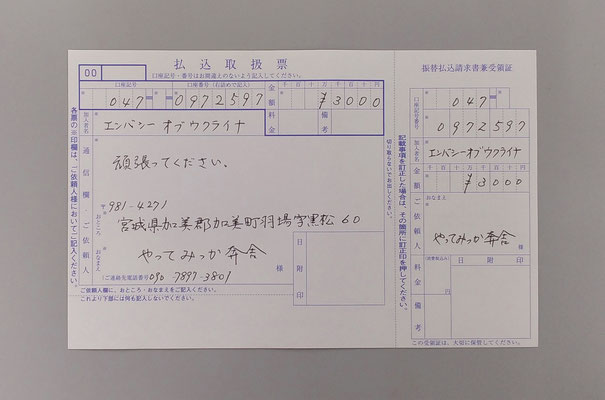 払込取扱票
口座記号・番号はお間違えのないよう記入してください。
00
口座記号
口座番号(右詰めで記入)
金額
千百十万千百十円
047
0972597
¥3000
加入者名
エンバシー オブ ウクライナ
料金
備考
通信欄
頑張ってください。
ご依頼人
〒981-4271
おところ
宮城県加美郡加美町羽場字黒松60
おなまえ
やってみっか奔舎
様
(ご連絡先電話番号 090 7897-3801
日附印
ご依頼人欄に、おところ・おなまえをご記入ください。
これより下部には何も記入しないでください。
各票の※印欄は、ご依頼人様においてご記入ください。
切り取らないでお出しください。
記載事項を訂正した場合は、その箇所に訂正印を押してください。
振替払込請求書兼受領証
口座記号
047
口座番号
0972597
加入者名
エンバシーオブウクライナ
金額
千百十万千百十円
¥3000
ご依頼人
おなまえ
やってみっか奔舎
様
料金
(消費税込み)
円
日附印
備考
この受領証は、大切に保管してください。